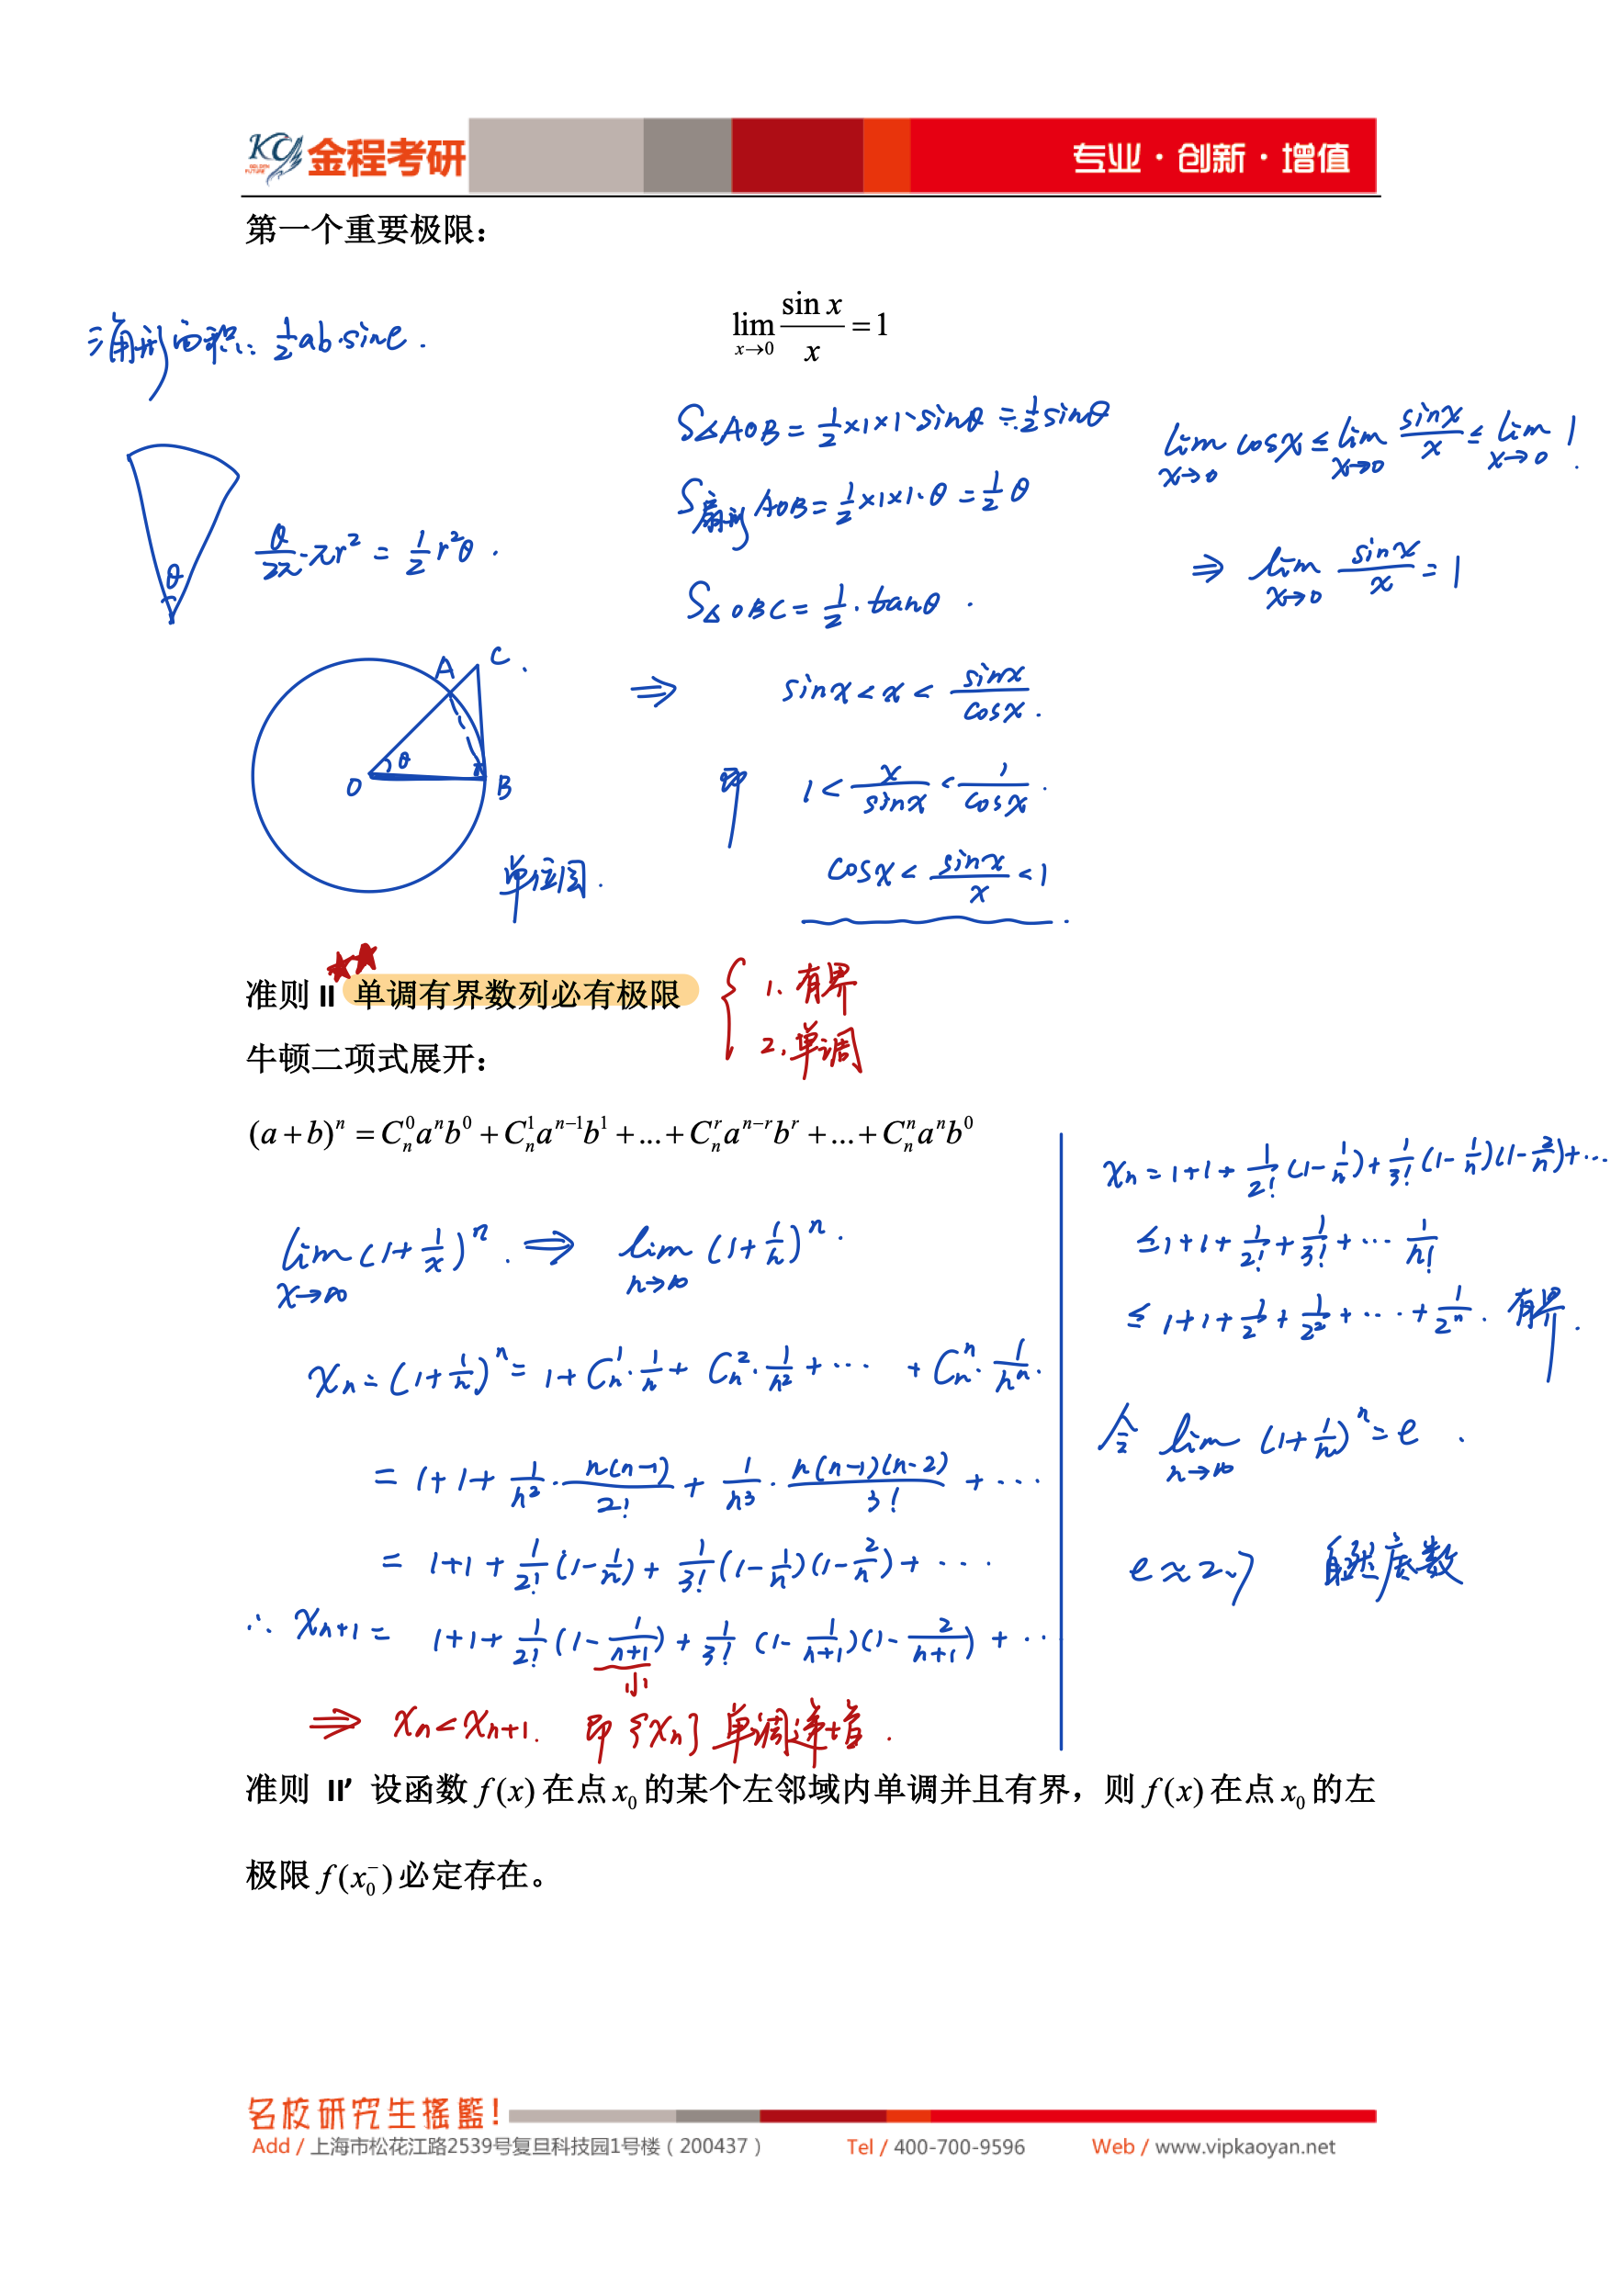 KC GOLDEN FUTURE 金程考研 专业·创新·增值
第一个重要极限：
lim_{x→0} sin x / x = 1
三角形面积: 1/2 ab·sinθ.
S△AOB = 1/2 ×1×1·sinθ = 1/2 sinθ
S扇形AOB = 1/2 ×1×1·θ = 1/2 θ
S△OBC = 1/2 · tanθ .
lim_{x→0} cosx ≤ lim_{x→0} sinx/x ≤ lim_{x→0} 1.
⇒ lim_{x→0} sinx/x = 1
θ
θ/2π · πr² = 1/2 r²θ .
A C.
O θ B
单位圆.
⇒ sinx < x < sinx/cosx.
即 1 < x/sinx < 1/cosx.
cosx < sinx/x < 1 .
准则 II 单调有界数列必有极限
1. 有界
2. 单调
牛顿二项式展开：
(a+b)^n = C_n^0 a^n b^0 + C_n^1 a^{n-1} b^1 + ... + C_n^r a^{n-r} b^r + ... + C_n^n a^n b^0
lim_{x→∞} (1+1/x)^n . ⇒ lim_{n→∞} (1+1/n)^n .
x_n = (1+1/n)^n = 1 + C_n^1·1/n + C_n^2·1/n² + ··· + C_n^n·1/n^n.
= 1+1+ 1/n² · n(n-1)/2! + 1/n³ · n(n-1)(n-2)/3! + ···
= 1+1+ 1/2! (1-1/n) + 1/3! (1-1/n)(1-2/n) + ···
∴ x_{n+1} = 1+1+ 1/2! (1-1/(n+1)) + 1/3! (1-1/(n+1))(1-2/(n+1)) + ··
小
⇒ x_n < x_{n+1}. 即{x_n}单调递增.
x_n = 1+1+ 1/2! (1-1/n) + 1/3! (1-1/n)(1-2/n) + ···
≤ 1+1+ 1/2! + 1/3! + ··· 1/n!
≤ 1+1+ 1/2 + 1/2² + ··· + 1/2^n . 有界.
令 lim_{n→∞} (1+1/n)^n = e .
e ≈ 2.7 自然底数
准则 II′ 设函数 f(x) 在点 x_0 的某个左邻域内单调并且有界，则 f(x) 在点 x_0 的左
极限 f(x_0^-) 必定存在。
名校研究生摇篮！
Add / 上海市松花江路2539号复旦科技园1号楼（200437） Tel / 400-700-9596 Web / www.vipkaoyan.net